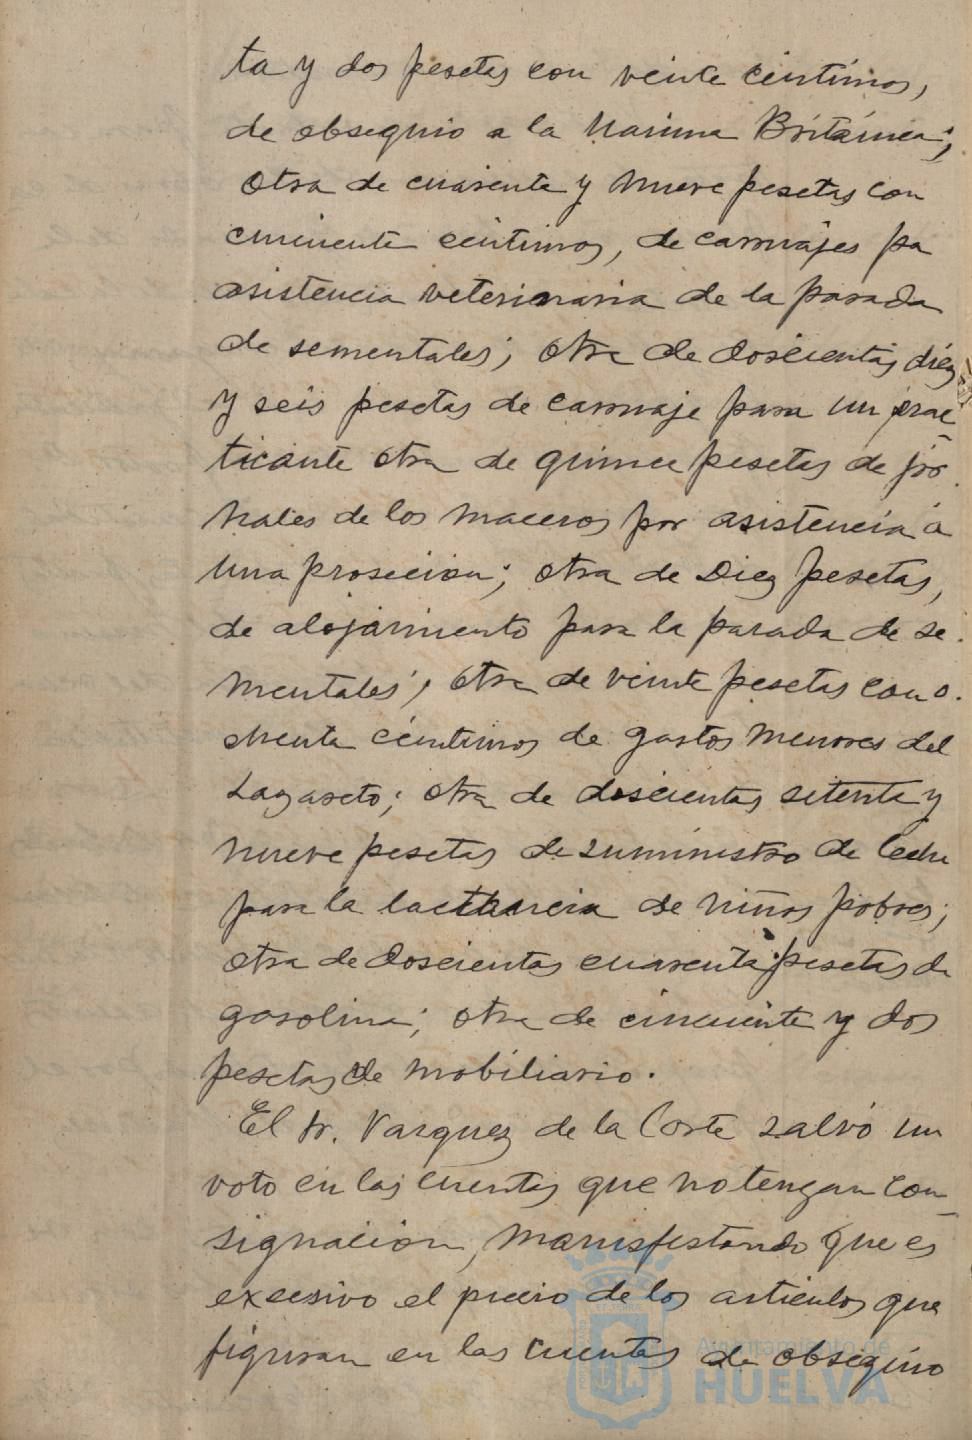 ta y dos pesetas con veinte centimos,
de obsequio a la Marina Británica;
otra de cuarenta y nueve pesetas con
cincuenta centimos, de carruajes pa
asistencia veterinaria de la parada
de sementales; otra de doscientas diez
y seis pesetas de carruaje para un prac
ticante otra de quince pesetas de jor
nales de los maceros por asistencia á
una prosecion; otra de Diez pesetas,
de alojamiento para la parada de se.
mentales; otra de veinte pesetas con o.
chenta céntimos de gastos menores del
Lazareto; otra de doscientas setenta y
nueve pesetas de suministro de leche
para la lactancia de niños pobres;
otra de doscientas cuarenta pesetas de
gasolina; otra de cincuenta y dos
pesetas de mobiliario.
El Sr. Vazquez de la Corte salvó su
voto en las cuentas que no tengan con_
signacion, manisfestando que es
excesivo el precio de los articulos que
figuran en las cuentas de obsequio
Ayuntamiento de
HUELVA